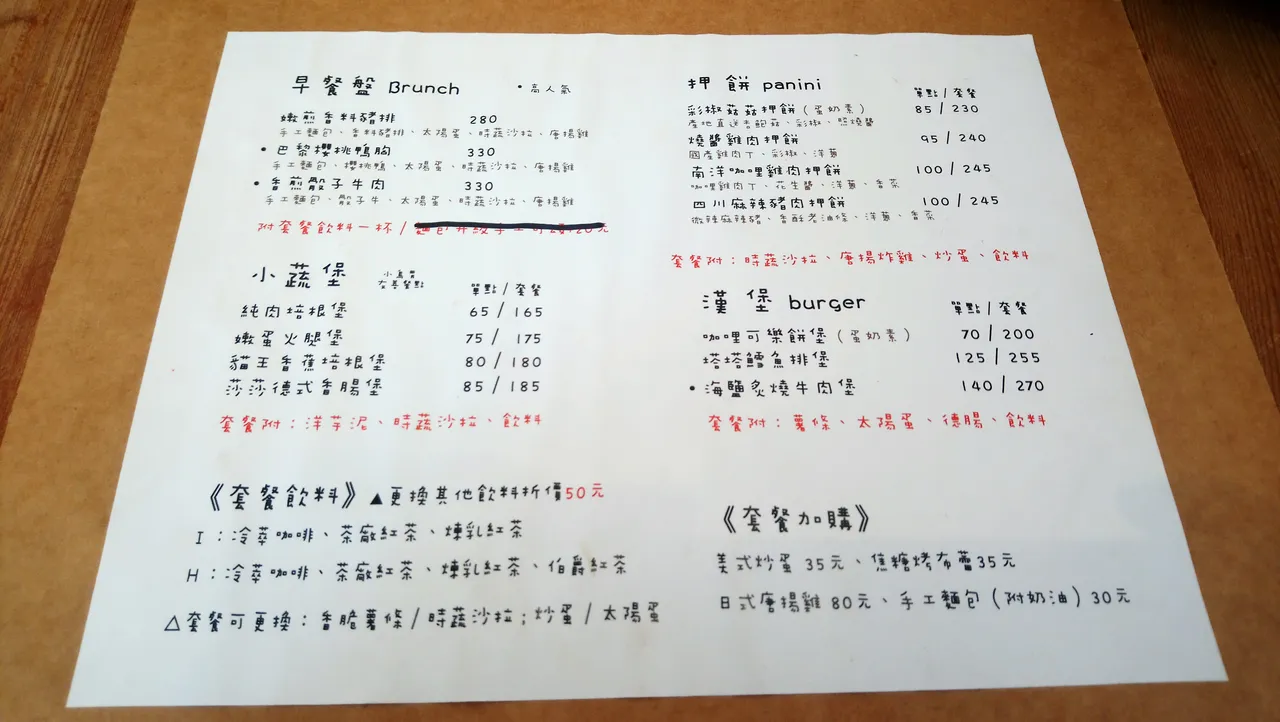 早餐盤 Brunch •高人氣
嫩煎香料豬排 280
手工麵包、香料豬排、太陽蛋、時蔬沙拉、唐揚雞
•巴黎櫻桃鴨胸 330
手工麵包、櫻桃鴨、太陽蛋、時蔬沙拉、唐揚雞
•香煎骰子牛肉 330
手工麵包、骰子牛、太陽蛋、時蔬沙拉、唐揚雞
附套餐飲料一杯/
小蔬堡 小鳥胃
友善餐點
單點/套餐
純肉培根堡 65/165
嫩蛋火腿堡 75/175
貓王香蕉培根堡 80/180
莎莎德式香腸堡 85/185
套餐附:洋芋泥、時蔬沙拉、飲料
《套餐飲料》▲更換其他飲料折價50元
I:冷萃咖啡、茶廠紅茶、煉乳紅茶
H:冷萃咖啡、茶廠紅茶、煉乳紅茶、伯爵紅茶
△套餐可更換:香脆薯條/時蔬沙拉;炒蛋/太陽蛋
押餅 panini
單點/套餐
彩椒菇菇押餅(蛋奶素) 85/230
產地直送杏鮑菇、彩椒、照燒醬
燒醬雞肉押餅 95/240
國產雞肉丁、彩椒、洋蔥
南洋咖哩雞肉押餅 100/245
咖哩雞肉丁、花生醬、洋蔥、香菜
四川麻辣豬肉押餅 100/245
微辣麻辣豬、香酥老油條、洋蔥、香菜
套餐附:時蔬沙拉、唐揚炸雞、炒蛋、飲料
漢堡 burger
單點/套餐
咖哩可樂餅堡(蛋奶素) 70/200
塔塔鱈魚排堡 125/255
•海鹽炙燒牛肉堡 140/270
套餐附:薯條、太陽蛋、德腸、飲料
《套餐加購》
美式炒蛋 35元、焦糖烤布蕾35元
日式唐揚雞 80元、手工麵包(附奶油)30元